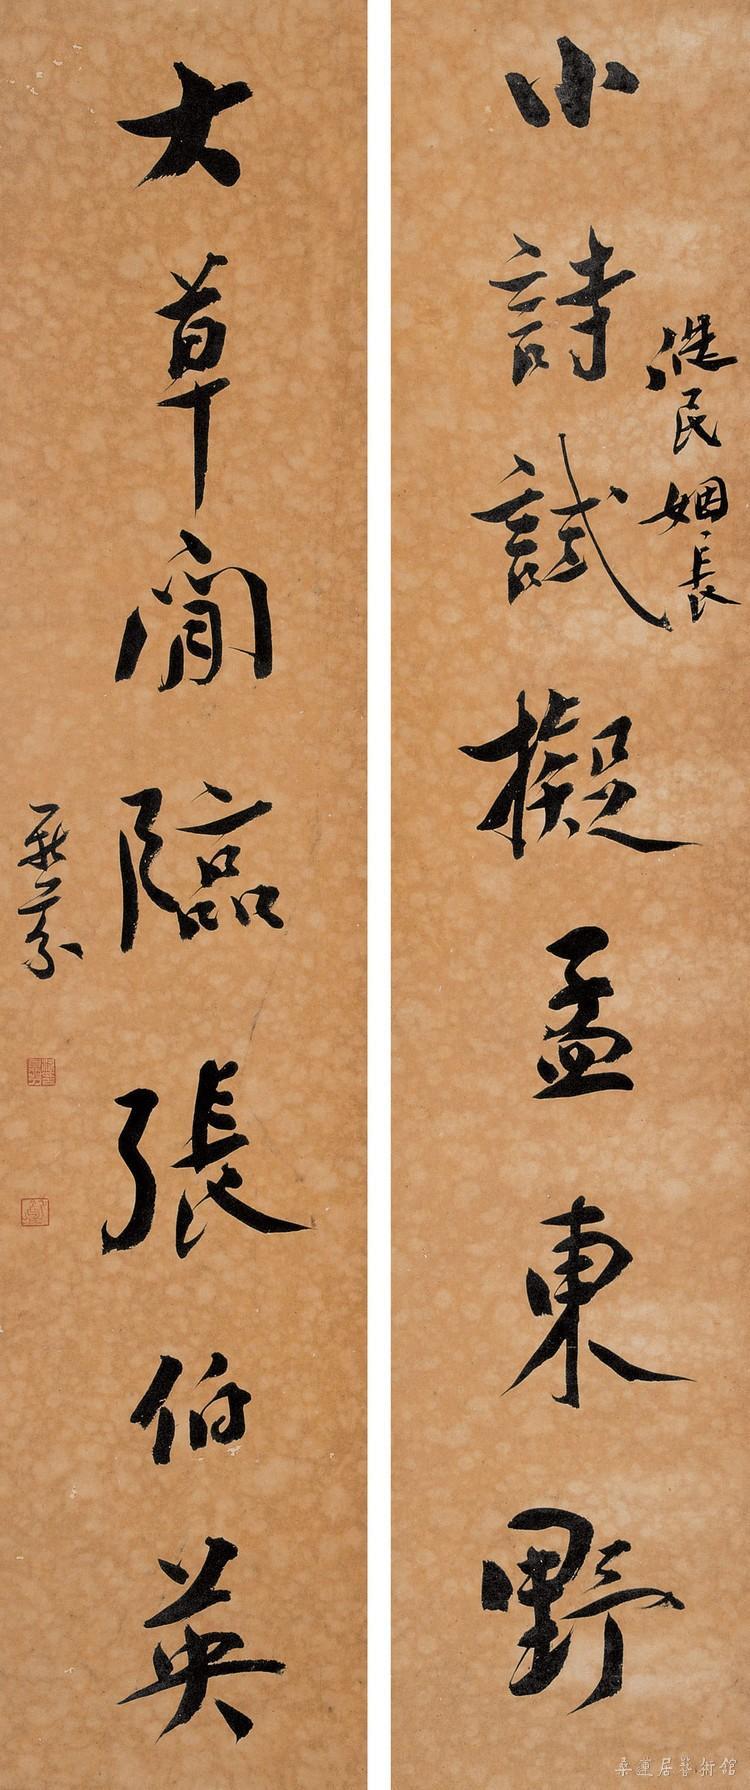 小詩試擬孟東野
民姻長
大草閒臨張伯英
桑蓮居藝術館